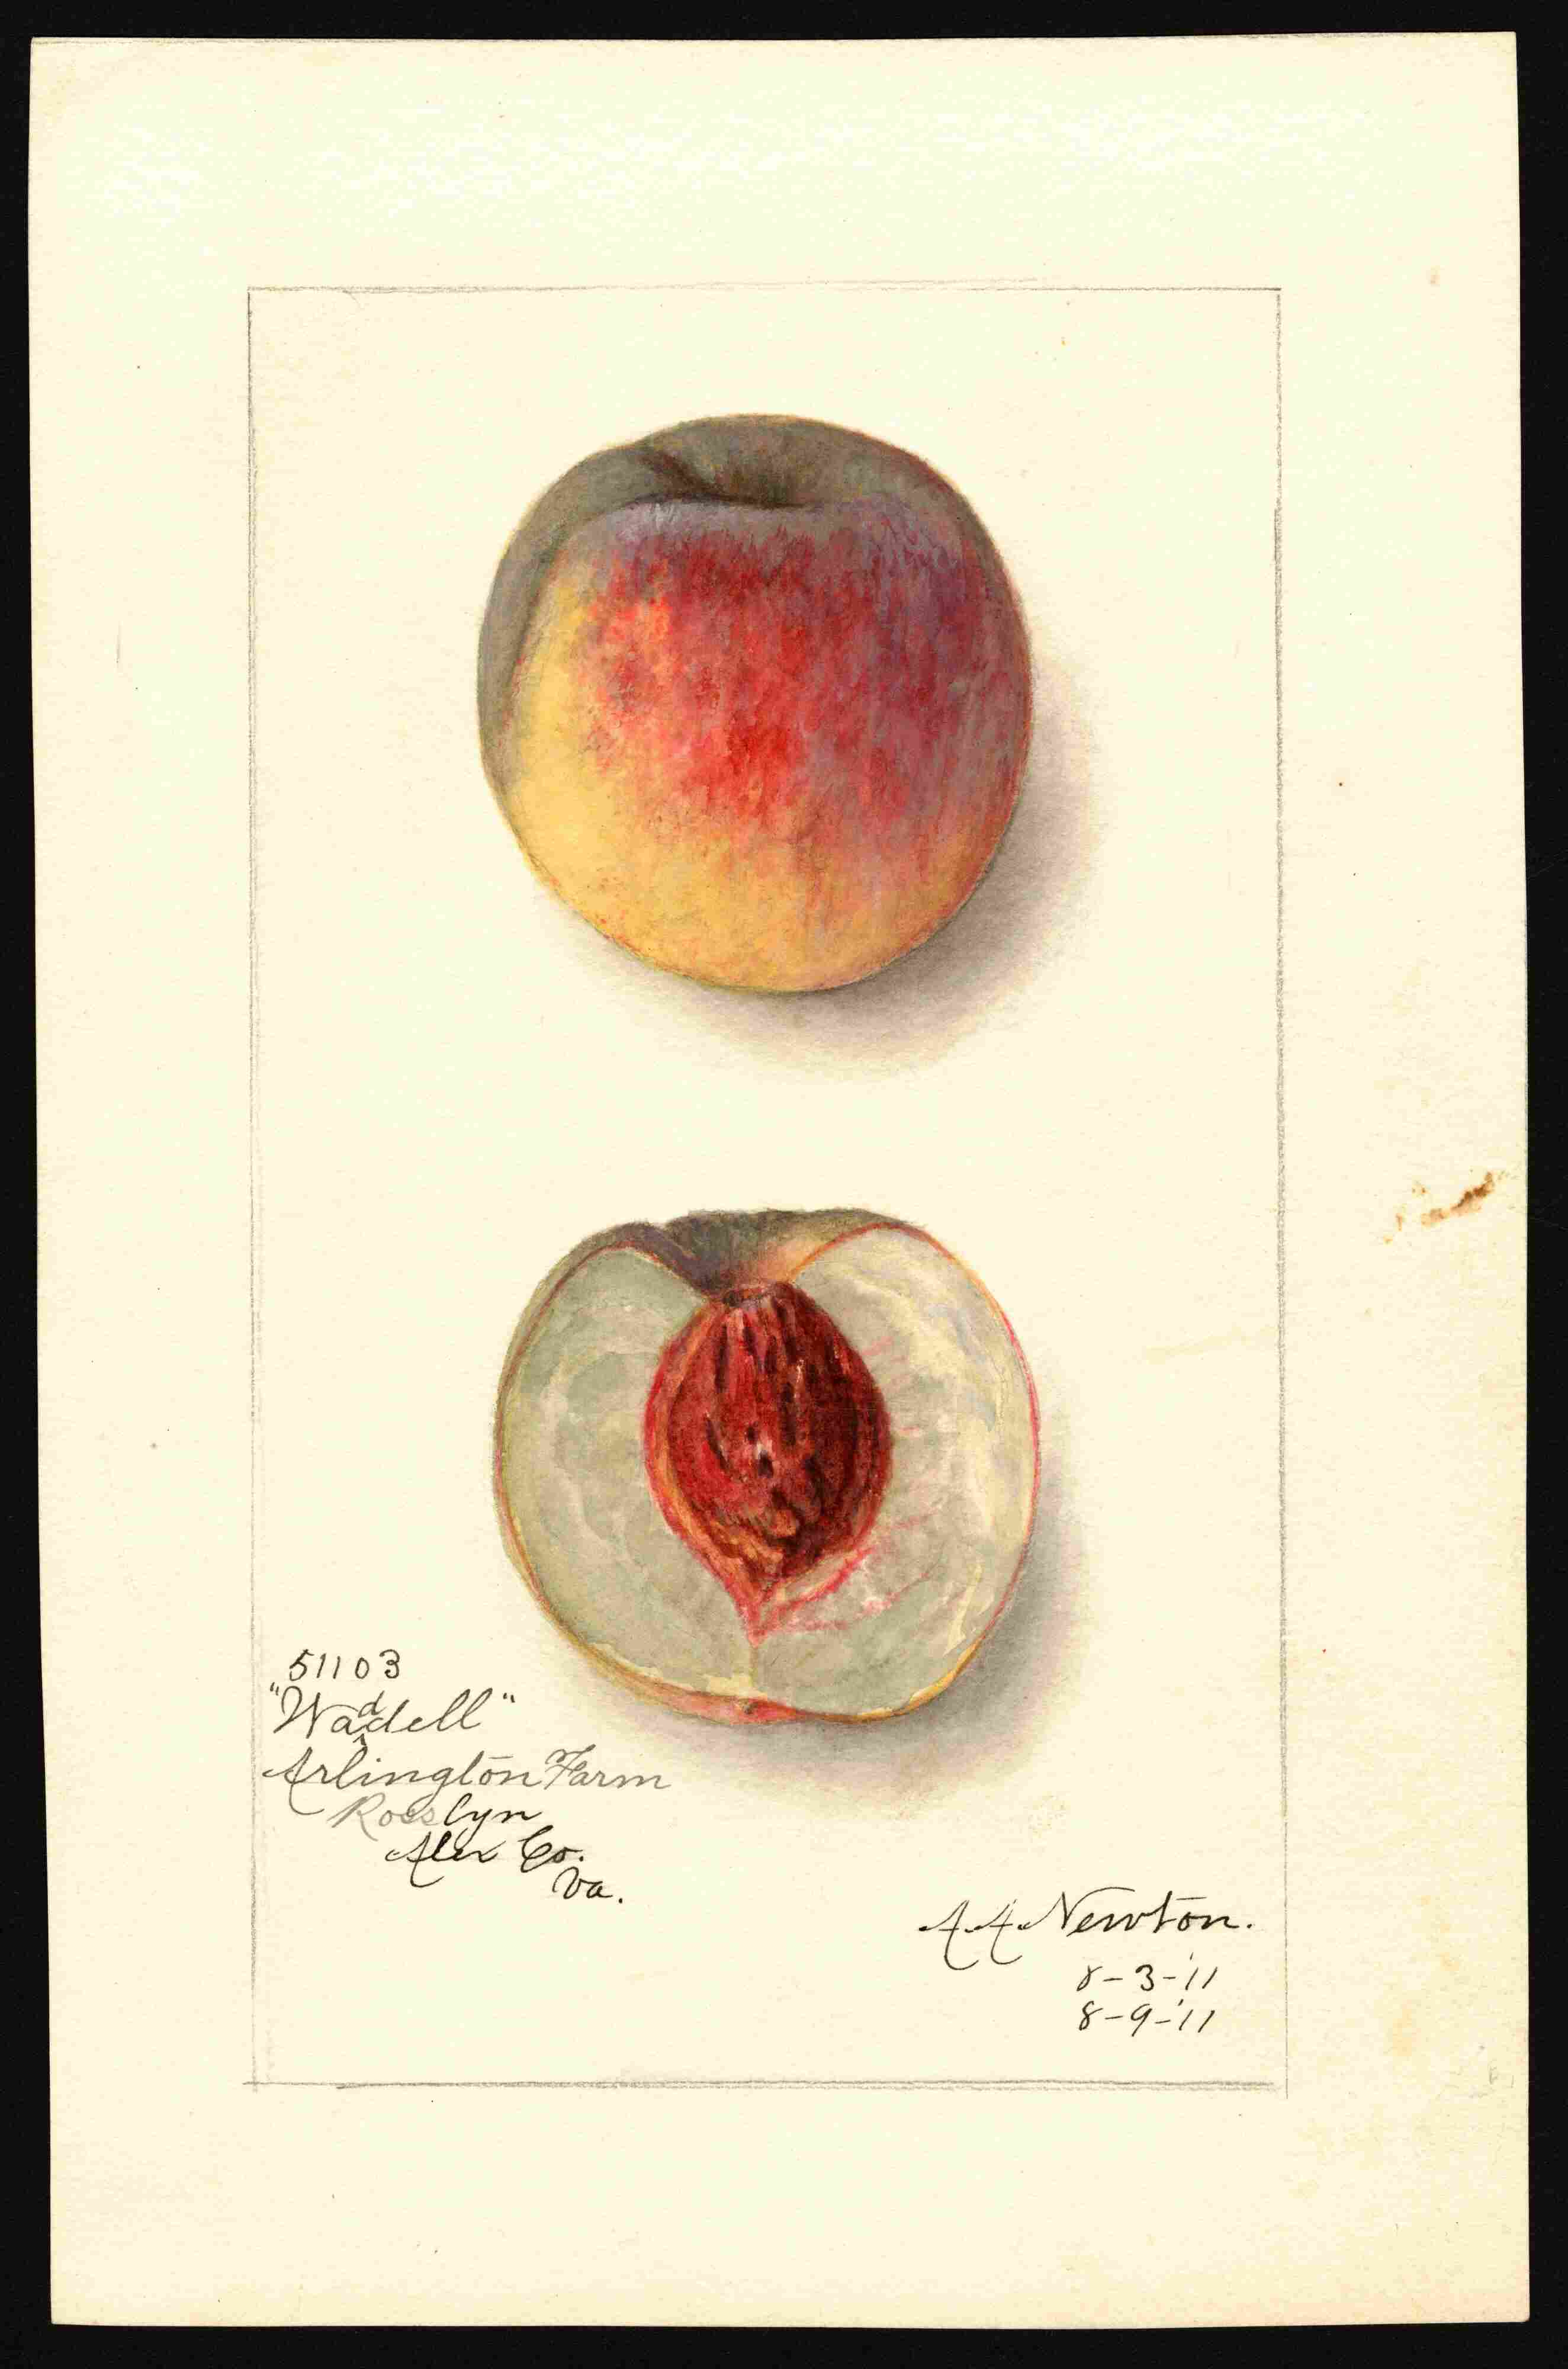 51103
"Waddell"
Arlington Farm
Rosslyn
Alex Co.
Va.
A A Newton.
8-3-'11
8-9-'11